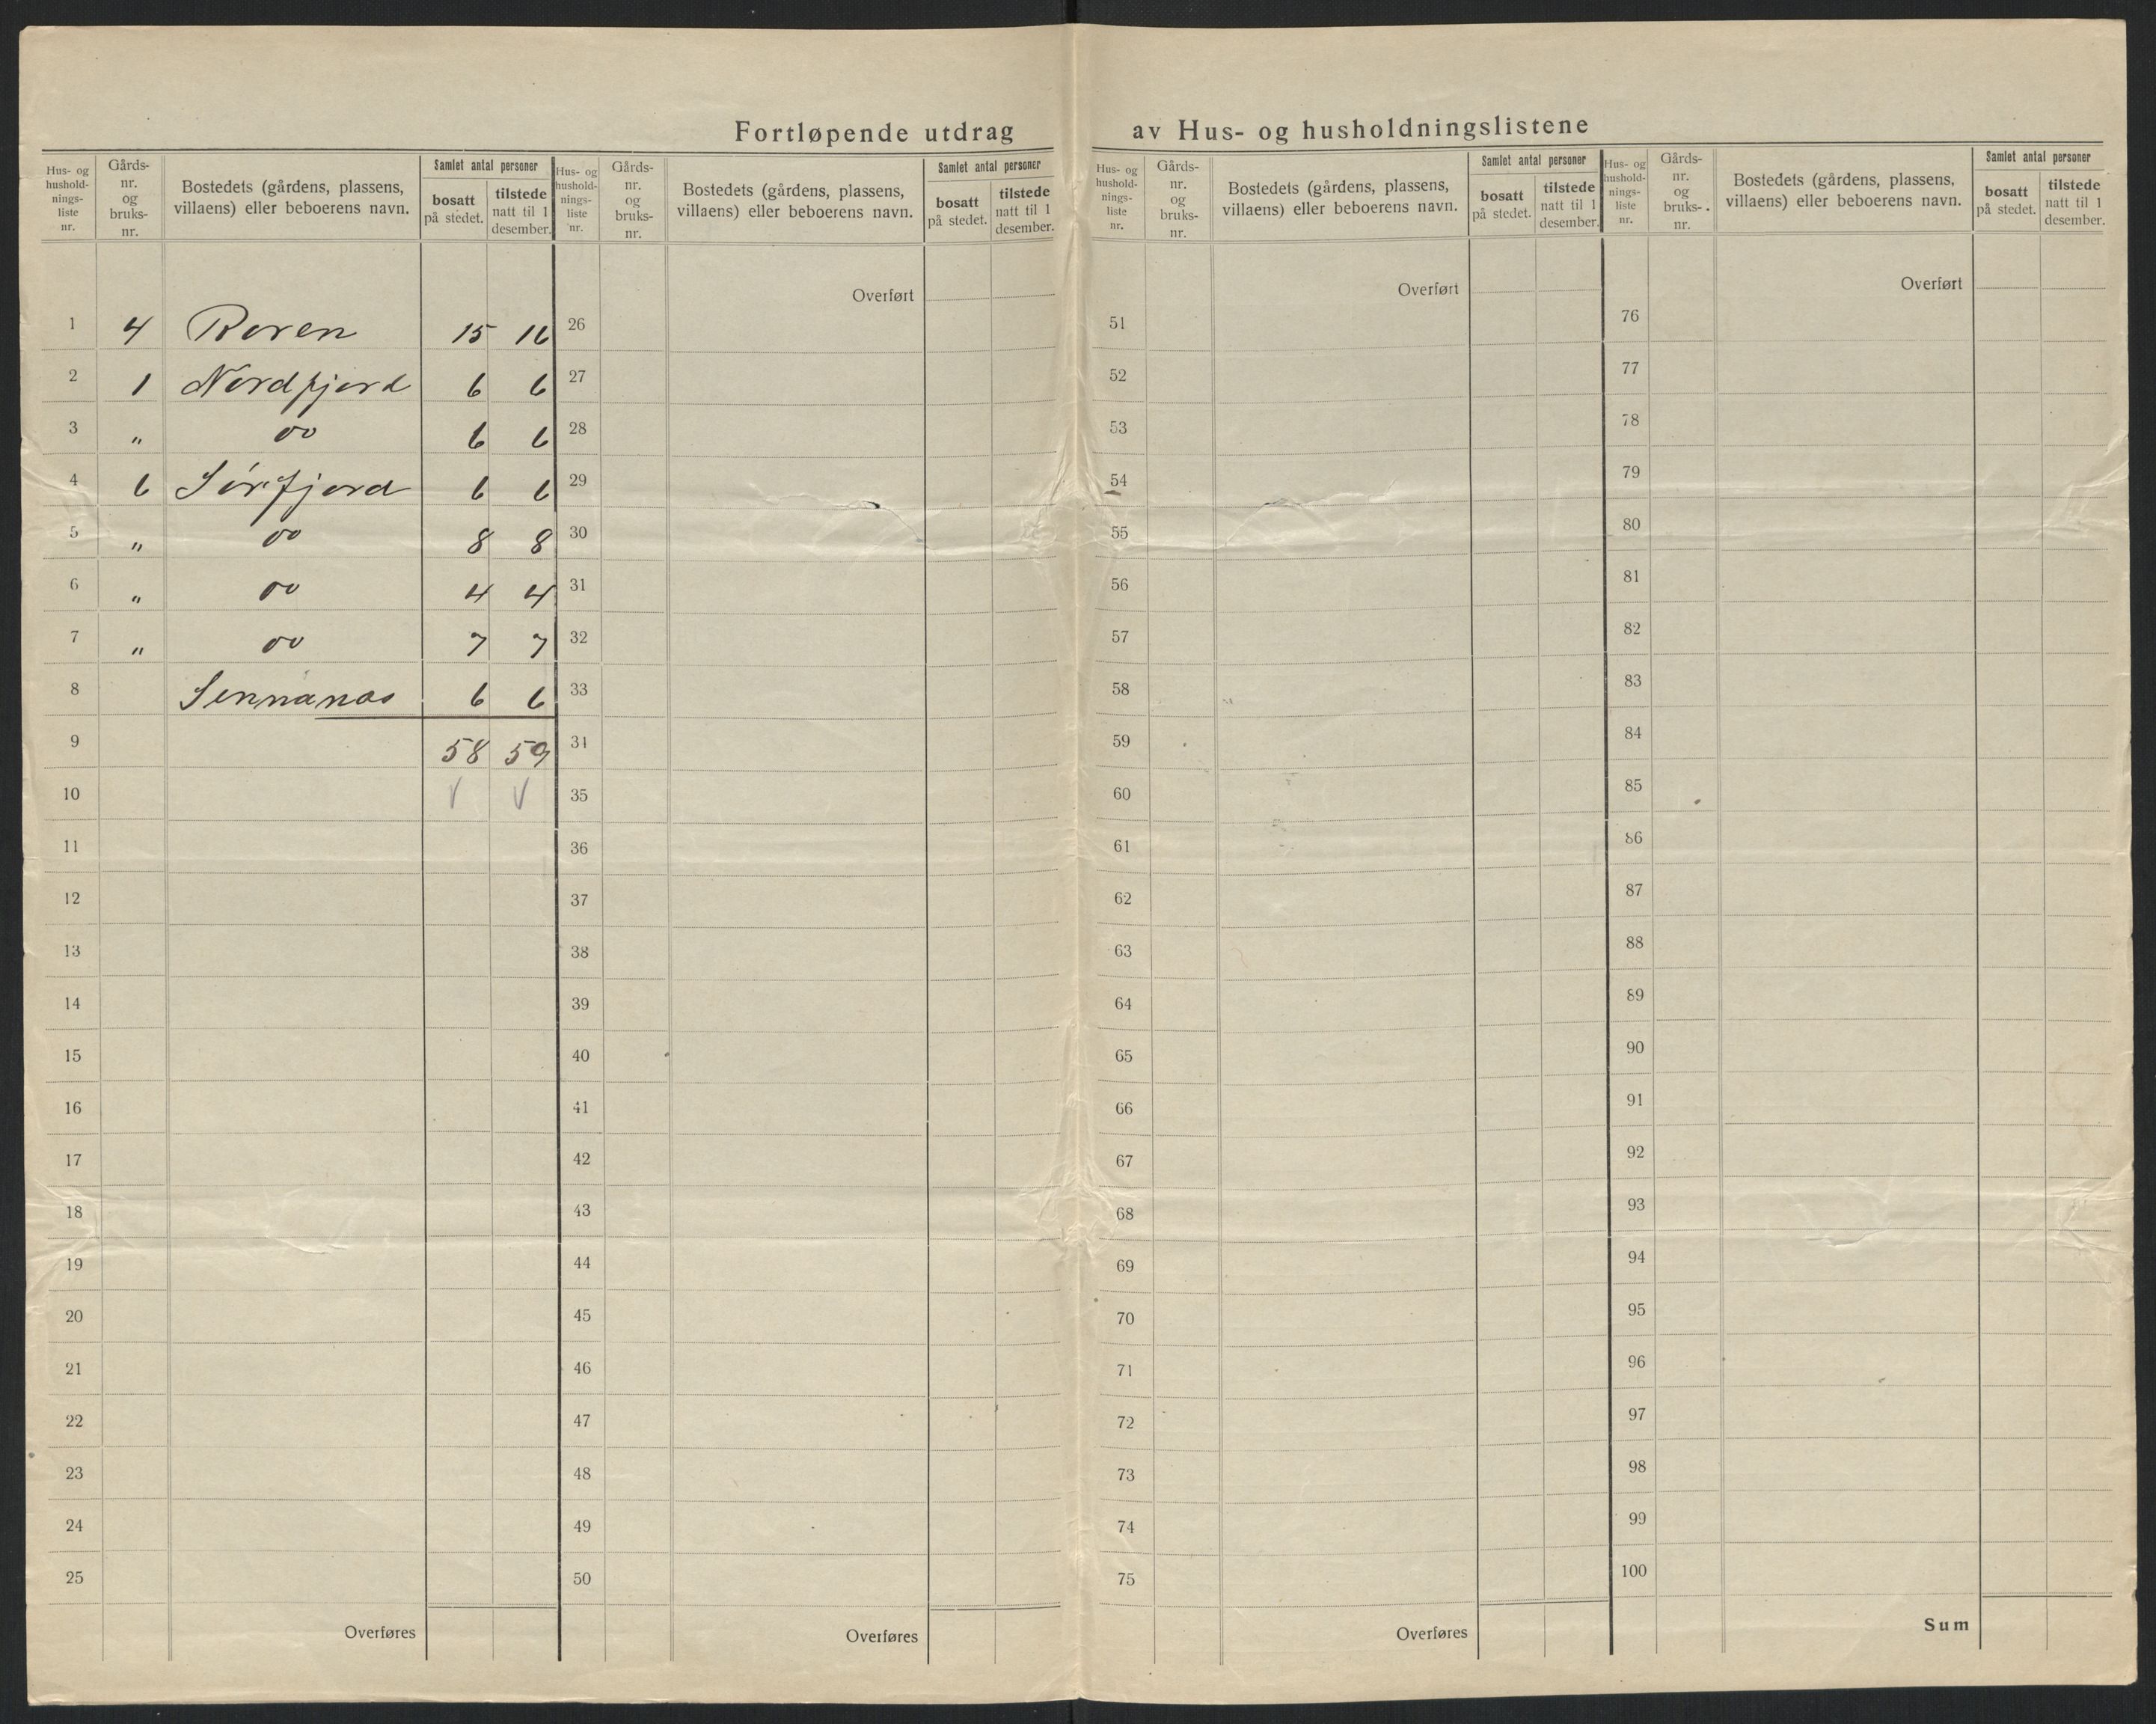 Fortløpende utdrag av Hus- og husholdningslistene
Hus- og hushold-nings-liste nr. | Gårds-nr. og bruks-nr. | Bostedets (gårdens, plassens, villaens) eller beboerens navn. | Samlet antal personer | bosatt på stedet. | tilstede natt til 1 desember.
Hus- og hushold-nings-liste nr. | Gårds-nr. og bruks-nr. | Bostedets (gårdens, plassens, villaens) eller beboerens navn. | Samlet antal personer | bosatt på stedet. | tilstede natt til 1 desember.
Hus- og hushold-nings-liste nr. | Gårds-nr. og bruks-nr. | Bostedets (gårdens, plassens, villaens) eller beboerens navn. | Samlet antal personer | bosatt på stedet. | tilstede natt til 1 desember.
Hus- og hushold-nings-liste nr. | Gårds-nr. og bruks-nr. | Bostedets (gårdens, plassens, villaens) eller beboerens navn. | Samlet antal personer | bosatt på stedet. | tilstede natt til 1 desember.
1 4 Roren 15 16
2 1 Nordfjord 6 6
3 " do 6 6
4 6 Sørfjord 6 6
5 " do 8 8
6 " do 4 4
7 " do 7 7
8 Sennanas 6 6
9 58 59
10 V V
11
12
13
14
15
16
17
18
19
20
21
22
23
24
25
Overføres
Overført
26
27
28
29
30
31
32
33
34
35
36
37
38
39
40
41
42
43
44
45
46
47
48
49
50
Overføres
Overført
51
52
53
54
55
56
57
58
59
60
61
62
63
64
65
66
67
68
69
70
71
72
73
74
75
Overføres
Overført
76
77
78
79
80
81
82
83
84
85
86
87
88
89
90
91
92
93
94
95
96
97
98
99
100
Sum